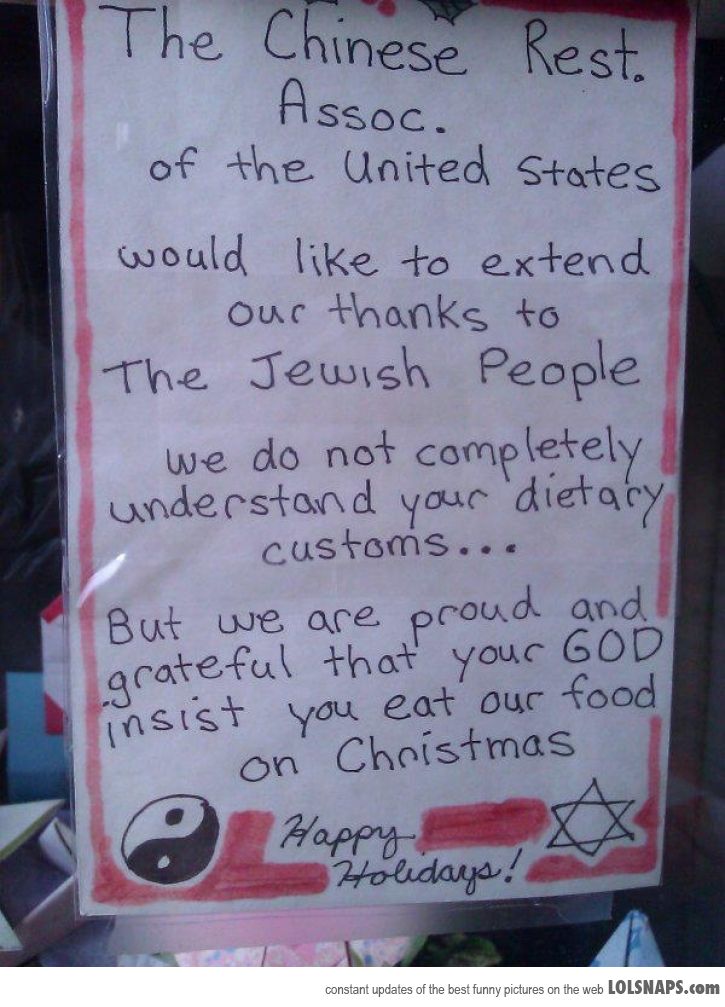 The Chinese Rest.
Assoc.
of the United States
would like to extend
our thanks to
The Jewish People
we do not completely
understand your dietary
customs...
But we are proud and
grateful that your GOD
insist you eat our food
on Christmas
Happy
Holidays!
constant updates of the best funny pictures on the web LOLSNAPS.com